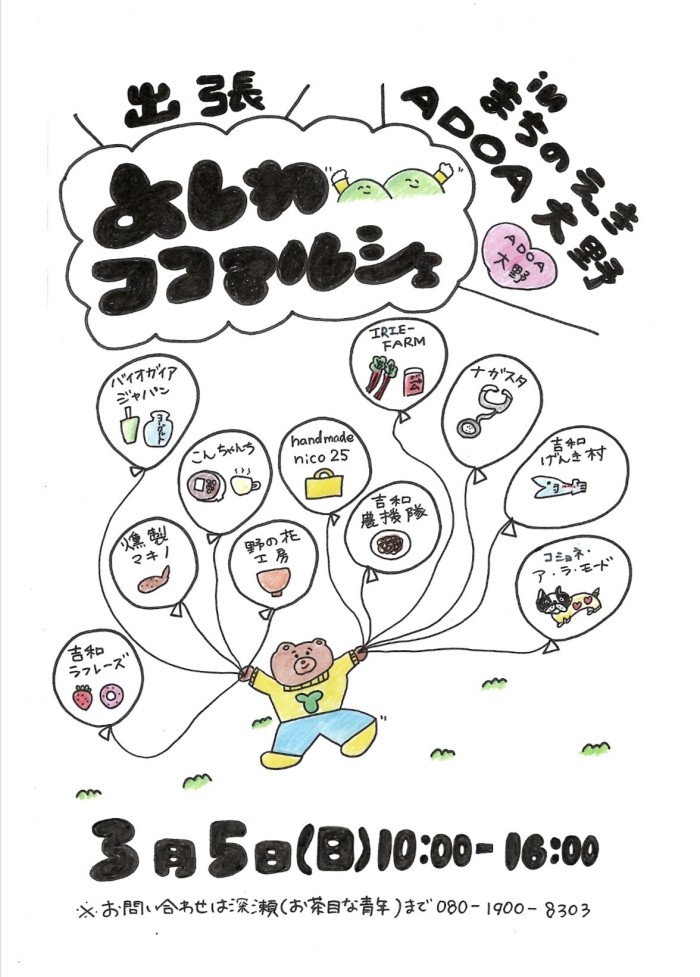 出張
よしわ
ココマルシェ
in
まちのえき
ADOA大野
ADOA
大野
IRIE-
FARM
ジャム
ナガスタ
バイオガイア
ジャパン
ヨーグルト
こんちゃんち
handmade
nico25
吉和
げんき村
吉和
農援隊
燻製
マキノ
野の花
工房
コミョネ・
ア・ラ・モード
吉和
ラフレーズ
3月5日(日)10:00-16:00
※お問い合わせは深瀬(お茶目な青年)まで080-1900-8303